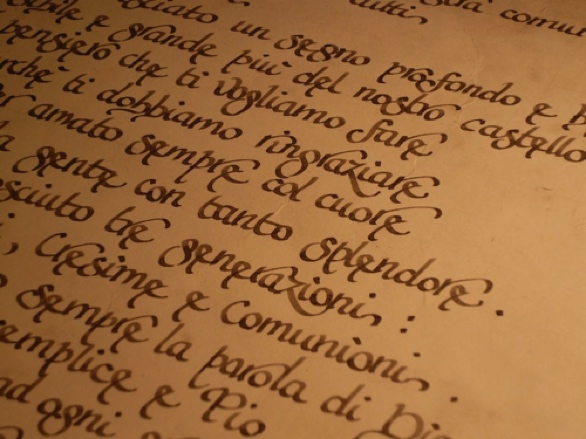 comu
tutti
un segno profondo e
e grande più del nostro castello
pensiero che ti vogliamo fare
ti dobbiamo ringraziare
amato sempre col cuore
gente con tanto splendore.
tre generazioni:
, Cresime e Comunioni.
sempre la parola di
e Pio
ad ogni